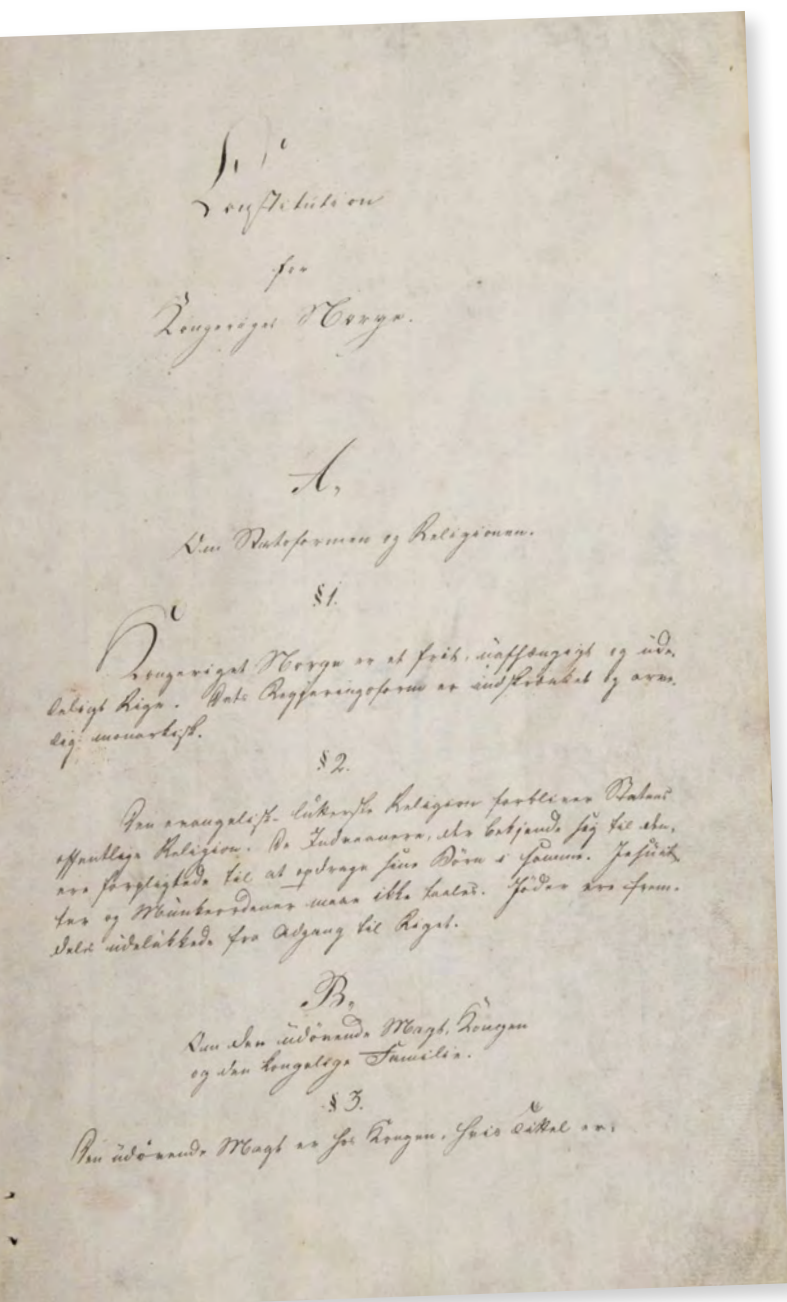 Constitution
for
Kongeriget Norge.
A,
Om Statsformen og Religionen.
§ 1.
Kongeriget Norge er et frit, uafhængigt og ude-
leligt Rige. Dets Regjeringsform er indskrænket og arve-
lig-monarkisk.
§ 2.
Den evangelisk-lutherske Religion forbliver Statens
offentlige Religion. De Indvaanere, der bekjende sig til den,
ere forpligtede til at opdrage sine Børn i samme. Jesuit-
ter og Munkeordener maae ikke taales. Jøder ere frem-
deles udelukkede fra Adgang til Riget.
B,
Om den udøvende Magt, Kongen
og den kongelige Familie.
§ 3.
Den udøvende Magt er hos Kongen, hvis Tittel er: